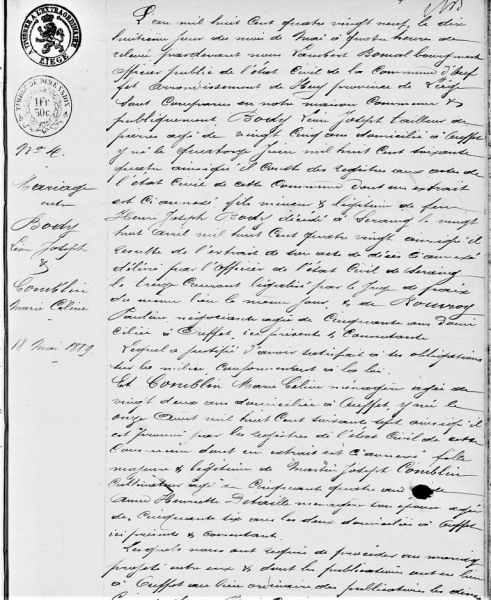 A TIMBRER A L'EXTRAORDINAIRE
LIEGE
TIMBRE DE DIMENSION
1 Fr
50c.
N° 6.
Mariage
entre
Body
Léon Joseph
&
Comblin
Marie Céline
18 Mai 1889
L'an mil huit Cent quatre vingt neuf, le dix
huitième jour du moi de Mai à quatre heures de
relevé pardevant nous Lambert
officier public de l'état Civil de la Commune d'Oef
fet arrondissement de Huy province de Liège
Sont Comparus en notre maison Commune &
publiquement, Body Léon Joseph tailleur de
pierres agé de vingt Cinq ans domicilié à Oeffet
y né le quatorze Juin mil huit Cent soixante
quatre ainsi qu'il Conste des registres aux actes de
l'état Civil de cette Commune dont un extrait
est Ci annexé fils mineur & légitime de feu
Henri Joseph Body décédé à Seraing le vingt
huit Avril mil huit Cent quatre vingt ainsi qu'il
resulte de l'extrait de son acte de décès Ci annexé
délivré par l'Officier de l'état Civil de Seraing
le treize Courant légalisé par le Juge de paix
du même lieu le même jour, & de Rouvroy
Pauline négociante agée de Cinquante ans domi
cilié à Oeffet, ici présente & Consentante
Lequel a justifié d'avoir satisfait à ses obligations
sur la milice Conformément à la loi.
Et Comblin Marie Céline ménagère agée de
vingt deux ans domiciliée à Oeffet, y née le
onze Aout mil huit Cent soixante sept ainsi qu'il
est prouvé par les registres de l'état Civil de cette
Commune dont un extrait est Ci annexé fille
majeure & légitime de Martin Joseph Comblin
Cultivateur agé de Cinquante quatre ans & de
Anne Henriette Detaille ménagère son épouse agée
de Cinquante six ans les deux domiciliés à Oeffet
ici présents & consentant.
Lesquels nous ont requis de procéder au mariage
projeté entre eux & dont les publications ont eu lieu
à Oeffet au lieu ordinaire des publications les